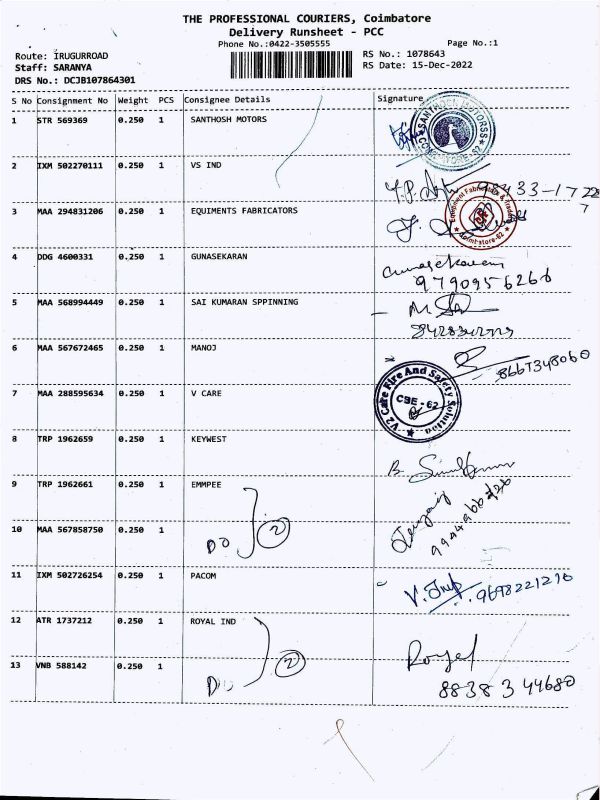 THE PROFESSIONAL COURIERS, Coimbatore
Delivery Runsheet - PCC
Phone No.:0422-3505555 Page No.:1
Route: IRUGURROAD RS No.: 1078643
Staff: SARANYA RS Date: 15-Dec-2022
DRS No.: DCJB107864301
S No Consignment No Weight PCS Consignee Details Signature
1 STR 569369 0.250 1 SANTHOSH MOTORS
2 IXM 502270111 0.250 1 VS IND
3 MAA 294831206 0.250 1 EQUIMENTS FABRICATORS
4 DDG 4600331 0.250 1 GUNASEKARAN Gunasekaran
9790956268
5 MAA 568994449 0.250 1 SAI KUMARAN SPPINNING
6 MAA 567672465 0.250 1 MANOJ
7 MAA 288595634 0.250 1 V CARE V2 Care Fire And Safety Solution CBE - 62
8 TRP 1962659 0.250 1 KEYWEST
9 TRP 1962661 0.250 1 EMMPEE
10 MAA 567858750 0.250 1 DO 2
11 IXM 502726254 0.250 1 PACOM
9698221210
12 ATR 1737212 0.250 1 ROYAL IND Royal
13 VNB 588142 0.250 1 DO 2
88383 44680